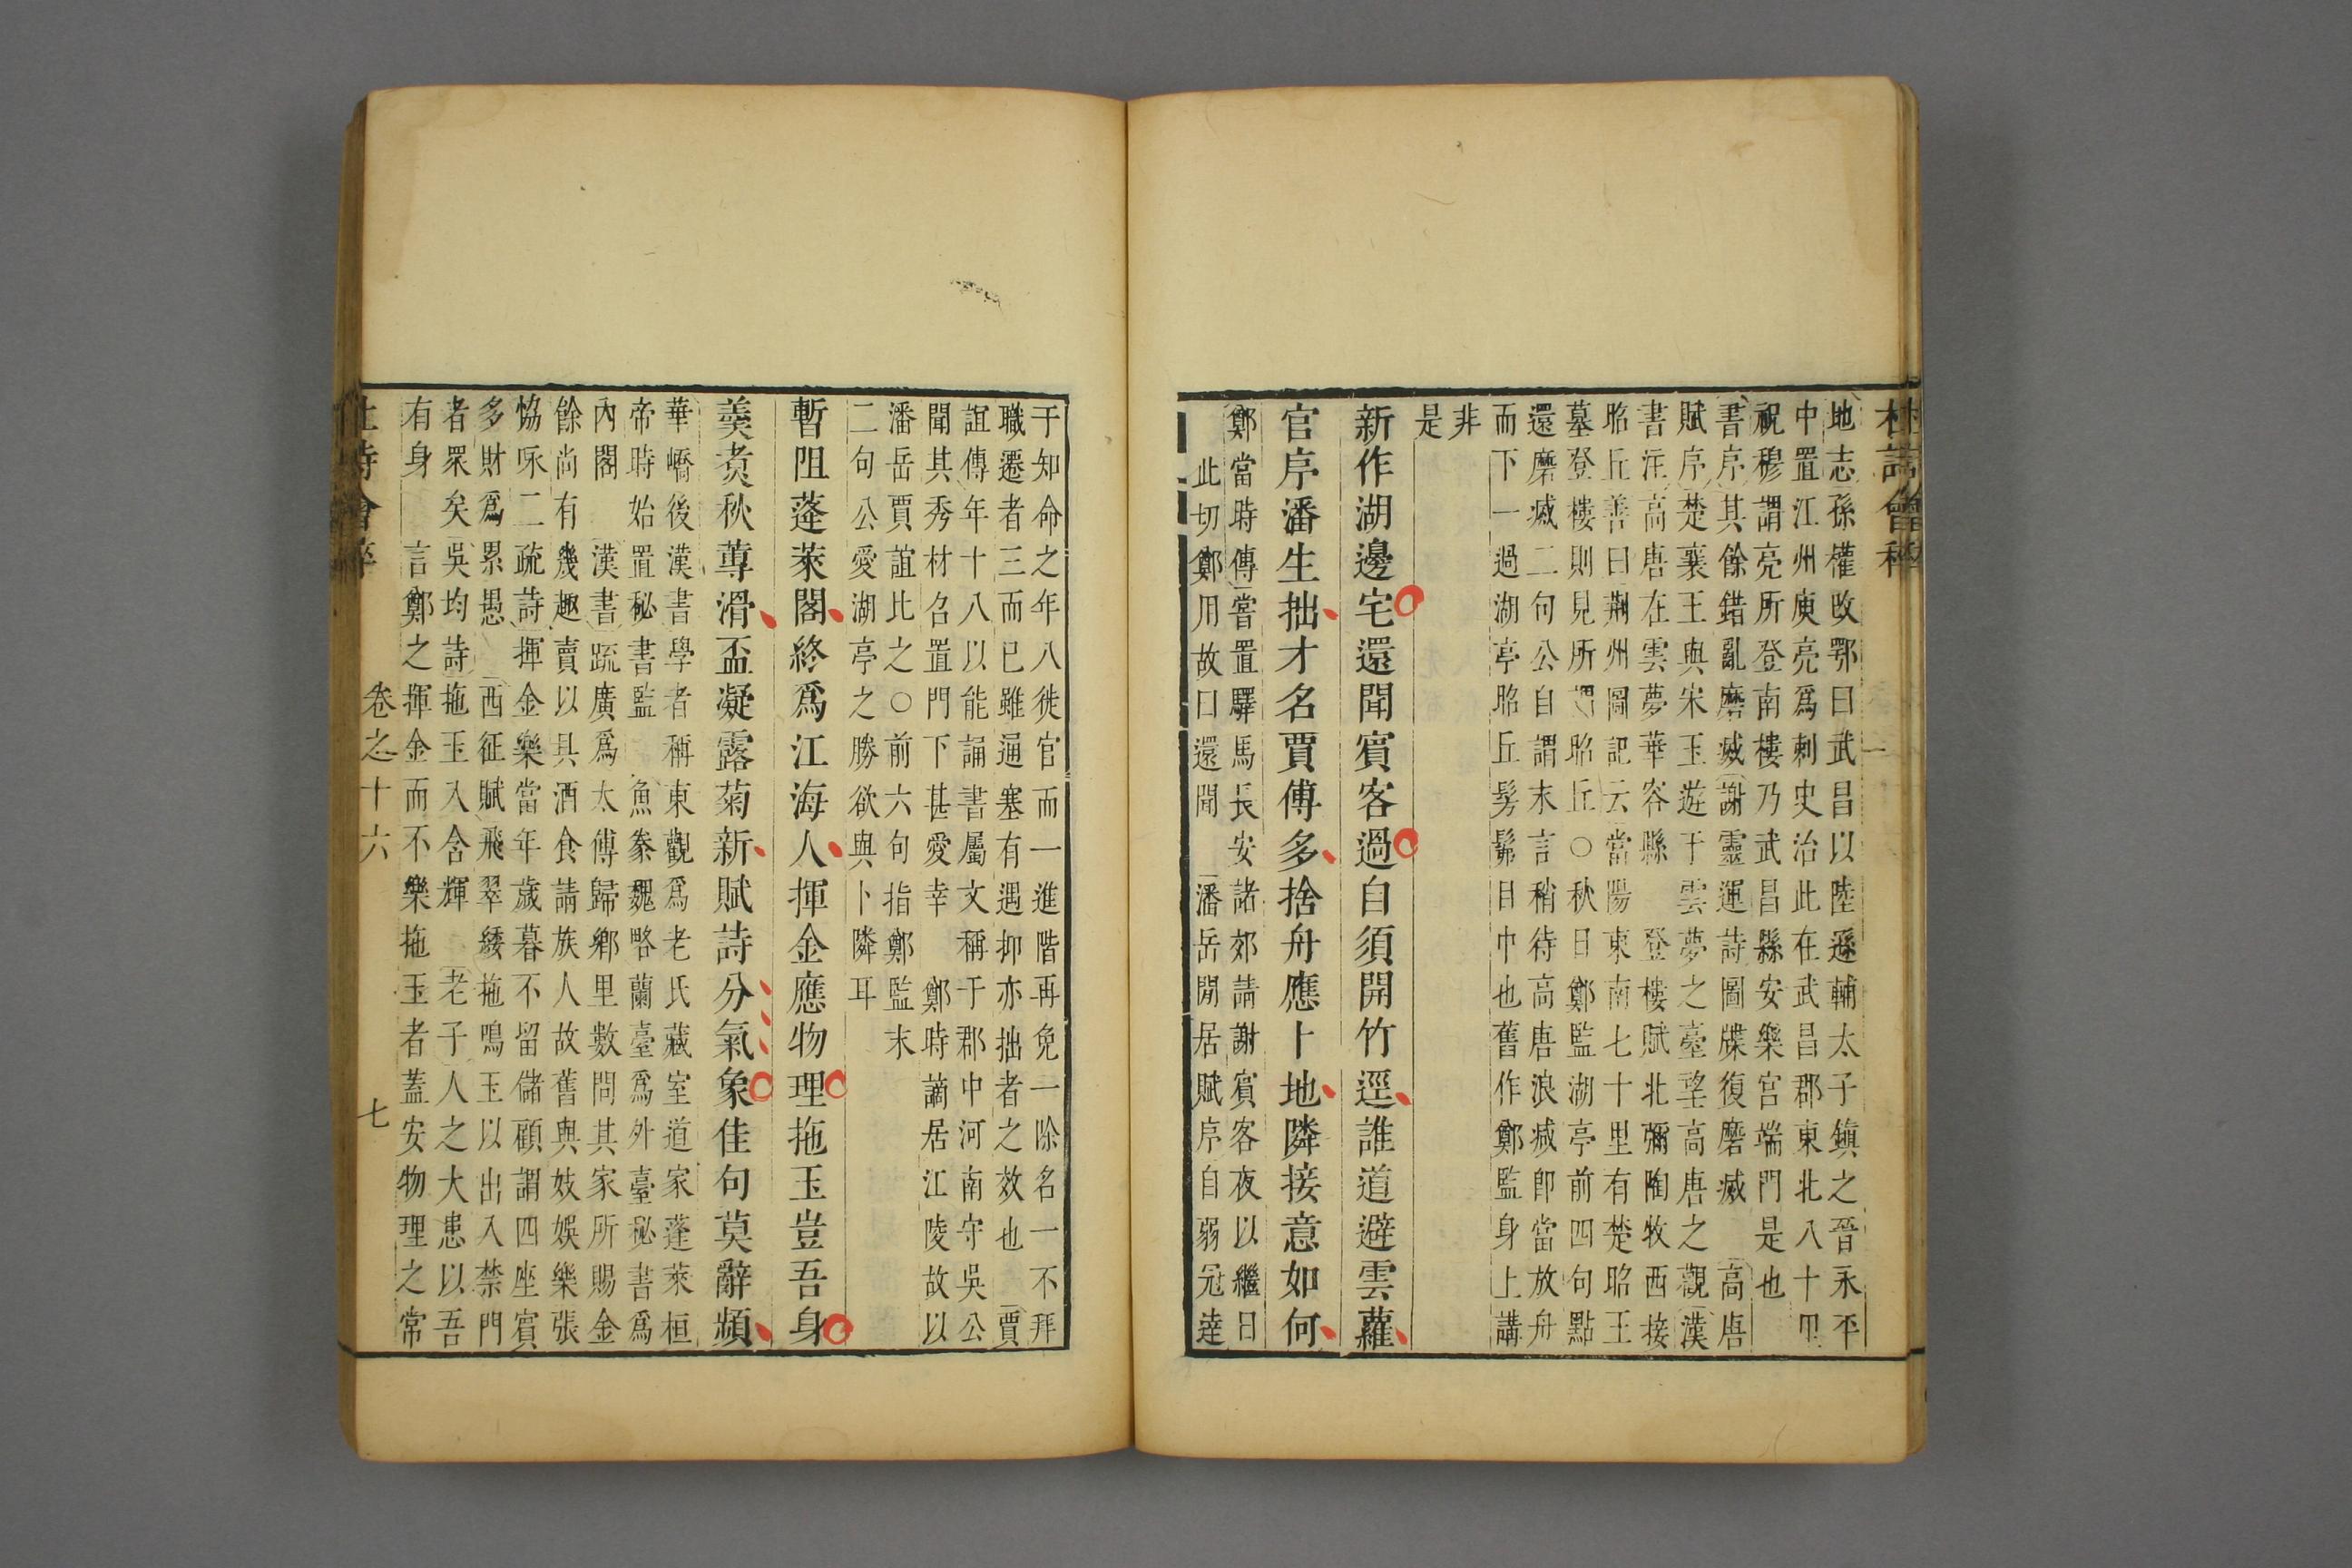 杜詩會稡
地志孫權改鄂曰武昌以陸遜輔太子鎮之晉永平
中置江州庾亮爲刺史治此在武昌郡東北八十里
祝穆謂亮所登南樓乃武昌縣安樂宮端門是也
書序其餘錯亂磨滅謝靈運詩圖牒復磨滅 高唐
賦序楚襄王與宋玉遊于雲夢之臺望高唐之觀漢
書注高唐在雲夢華容縣 登樓賦北彌陶牧西接
昭丘善曰荆州圖記云當陽東南七十里有楚昭王
墓登樓則見所謂昭丘○秋日鄭監湖亭前四句點
還磨滅二句公自謂末言稍待高唐浪減即當放舟
而下一過湖亭昭丘髣髴目中也舊作鄭監身上講
非
是
新作湖邊宅還聞賓客過自須開竹逕誰道避雲蘿
官序潘生拙才名賈傅多捨舟應卜地隣接意如何
鄭當時傳嘗置驛馬長安諸郊請謝賓客夜以繼日
此切鄭用故曰還聞 潘岳閒居賦序自弱冠達
于知命之年八徙官而一進階再免一除名一不拜
職遷者三而已雖通塞有遇抑亦拙者之效也 賈
誼傳年十八以能誦書屬文稱于郡中河南守吳公
聞其秀材召置門下甚愛幸 鄭時謫居江陵故以
潘岳賈誼比之○前六句指鄭監末
二句公愛湖亭之勝欲與卜隣耳
暫阻蓬萊閣終爲江海人揮金應物理拖玉豈吾身
羹煑秋蓴滑盃凝露菊新賦詩分氣象佳句莫辭頻
華嶠後漢書學者稱東觀爲老氏藏室道家蓬萊桓
帝時始置秘書監 魚豢魏略蘭臺爲外臺秘書爲
內閣 漢書疏廣爲太傅歸鄉里數問其家所賜金
餘尚有幾趣賣以具酒食請族人故舊與妓娛樂張
恊咏二疏詩揮金樂當年歲暮不留儲顧謂四座賓
多財爲累愚 西征賦飛翠緌拖鳴玉以出入禁門
者衆矣吳均詩拖玉入含輝 老子人之大患以吾
有身 言鄭之揮金而不樂拖玉者蓋安物理之常
杜詩會稡 卷之十六 七